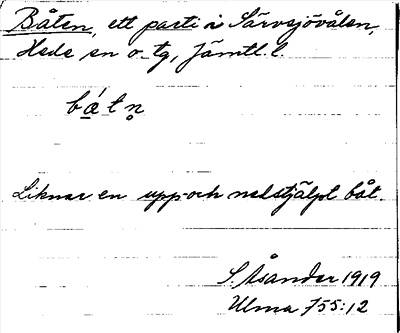 Båten, ett parti å Särvsjövålen,
Hede sn o. tg, Jämtl. l.
bǻtn̥
Liknar en upp- och nedstjälpt båt.
S. Åsander 1919
Ulma 755:12